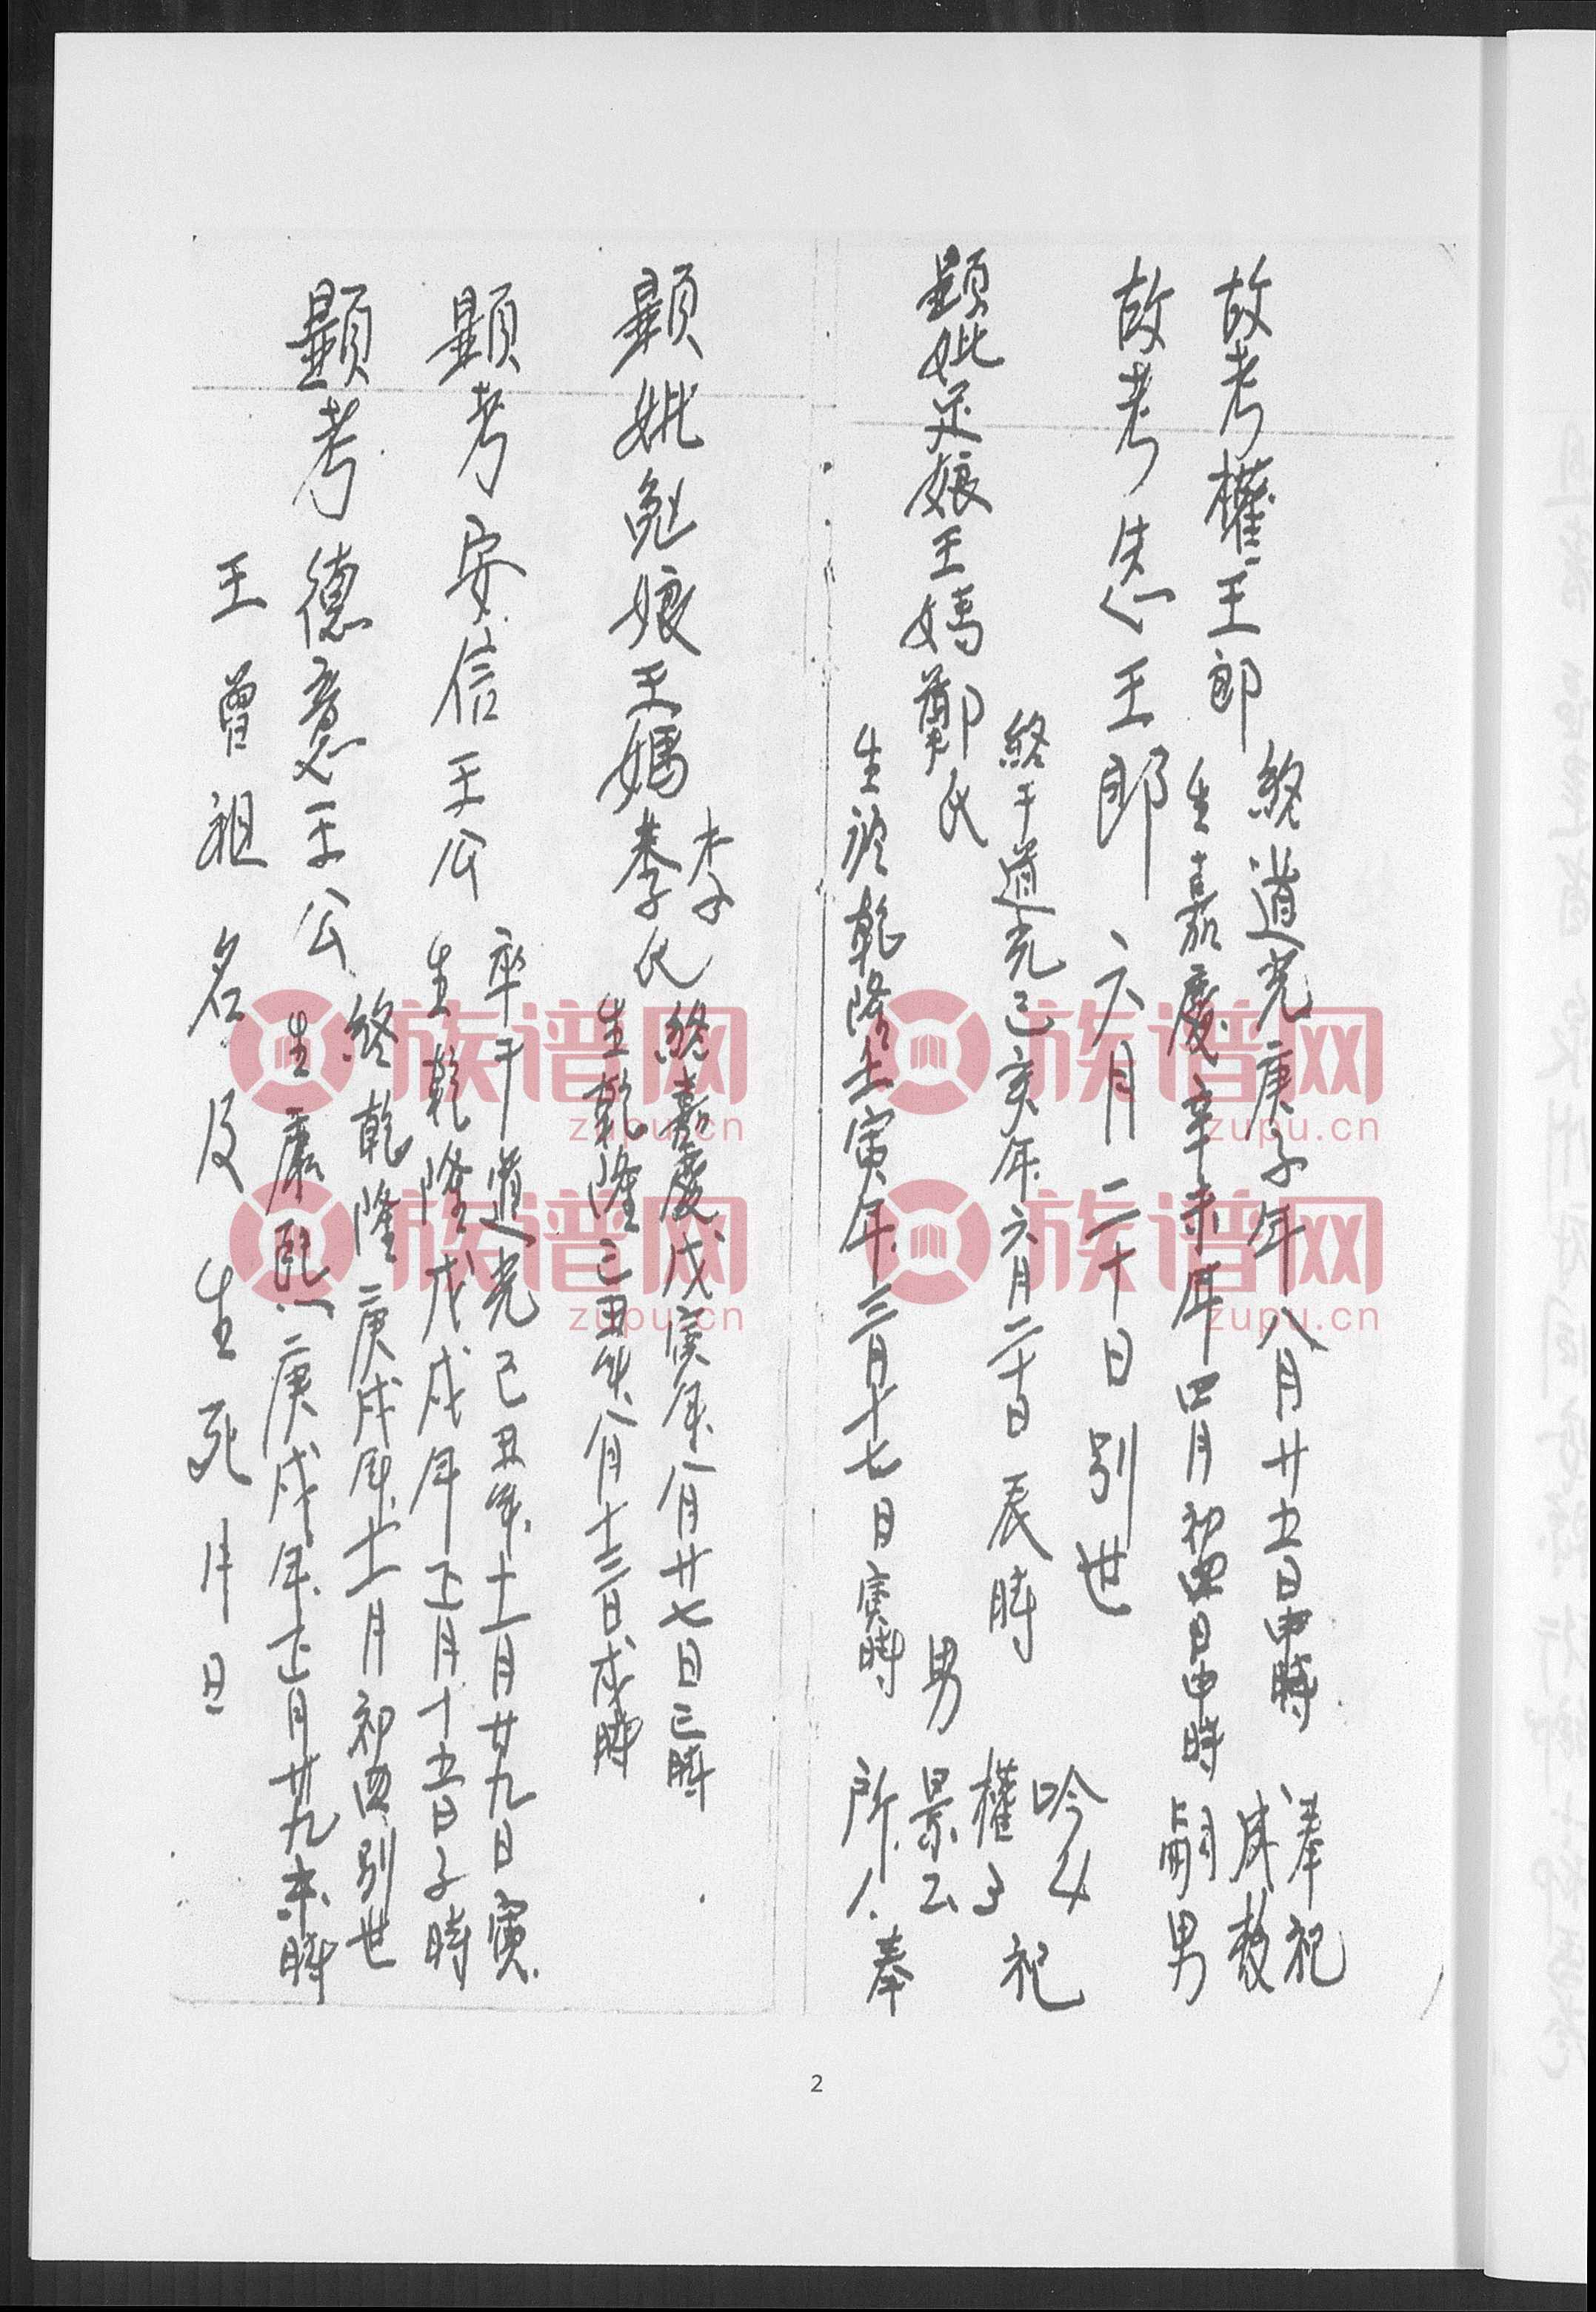 故考權王郎
終道光庚子年八月廿五日申時
生嘉慶辛未年四月初四日申時
奉祀
嗣男
故考 王郎 六月二十日別世
終于道光己亥年六月二十日辰時
顯妣足娘王媽鄭氏
生於乾隆壬寅年三月十七日寅時
男
吟
權
景
所
奉
祀
李
顯妣 娘王媽李氏
終嘉慶戊寅年八月廿七日巳時
生乾隆己丑年八月十三日戌時
顯考安信王公
卒于道光己丑年十二月廿九日寅
生乾隆戊戌年正月十五日子時
顯考德意王公
終乾隆庚戌年十一月初四別世
生康熙庚戌年正月廿九未時
王曾祖名及生死月日
族谱网
zupu.cn
族谱网
zupu.cn
族谱网
zupu.cn
族谱网
zupu.cn
2